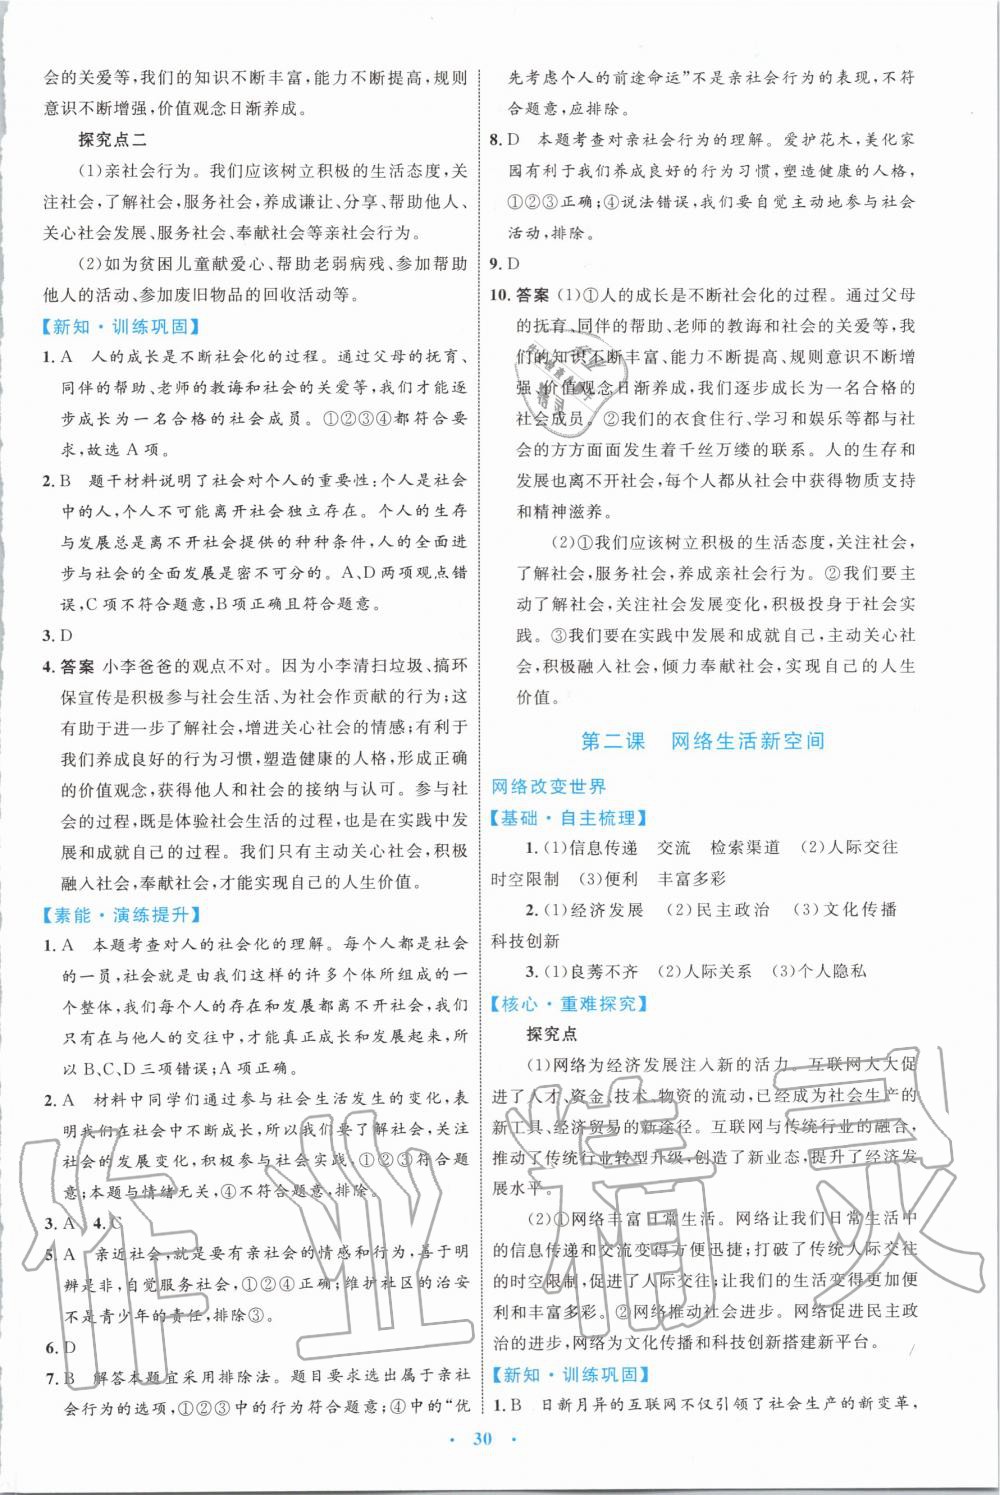 会的关爱等,我们的知识不断丰富,能力不断提高,规则
意识不断增强,价值观念日渐养成。
探究点二
(1)亲社会行为。我们应该树立积极的生活态度,关
注社会,了解社会,服务社会,养成谦让、分享、帮助他人、
关心社会发展、服务社会、奉献社会等亲社会行为。
(2)如为贫困儿童献爱心、帮助老弱病残、参与帮助
他人的活动、参加废旧物品的回收活动等。
【新知·训练巩固】
1. A 人的成长是不断社会化的过程。通过父母的抚育、
同伴的帮助、老师的教诲和社会的关爱等,我们才能逐
步成长为一名合格的社会成员。①②③④都符合要
求,故选 A 项。
2. B 题干材料说明了社会对个人的重要性:个人是社会
中的人,个人不可能离开社会独立存在。个人的生存
与发展总是离不开社会提供的种种条件,人的全面进
步与社会的全面发展是密不可分的。A、D 两项观点错
误,C 项不符合题意,B 项正确且符合题意。
3. D
4. 答案 小李爸爸的观点不对。因为小李清扫垃圾、搞环
保宣传是积极参与社会生活、为社会作贡献的行为;这
有助于进一步了解社会,增进关心社会的情感;有利于
我们养成良好的行为习惯,塑造健康的人格,形成正确
的价值观念,获得他人和社会的接纳与认可。参与社
会的过程,既是体验社会生活的过程,也是在实践中发
展和成就自己的过程。我们只有主动关心社会,积极
融入社会,奉献社会,才能实现自己的人生价值。
【素能·演练提升】
1. A 本题考查对人的社会化的理解。每个人都是社会
的一员,社会就是由我们这样的许多个体所组成的一
个整体,我们每个人的存在和发展都离不开社会,我们
只有在与他人的交往中,才能真正成长和发展起来,所
以 B、C、D 三项错误;A 项正确。
2. A 材料中同学们通过参与社会生活发生的变化,表
明我们在社会中不断成长,所以我们要了解社会,关注
社会发展变化,积极参与社会实践,①②③符合题
意;本题与情绪无关,④不符合题意,排除。
3. A 4. C
5. A 亲近社会,就是要有亲社会的情感和行为,善于明
辨是非,自觉服务社会,①②④正确;维护社区的治安
不是青少年的责任,排除③。
6. D
7. B 解答本题宜采用排除法。题目要求选出属于亲社
会行为的选项,①②③中的行为符合题意;④中的“优
先考虑个人的前途命运”不是亲社会行为的表现,不符
合题意,应排除。
8. D 本题考查对亲社会行为的理解。爱护花木,美化家
园有利于我们养成良好的行为习惯,塑造健康的人格,
①②③正确;④说法错误,我们要自觉主动地参与社会
活动,排除。
9. D
10. 答案 (1)①人的成长是不断社会化的过程。通过父母
的抚育、同伴的帮助、老师的教诲和社会的关爱等,我
们的知识不断丰富、能力不断提高、规则意识不断增
强、价值观念日渐养成,我们逐步成长为一名合格的
社会成员。②我们的衣食住行、学习和娱乐等都与社
会的方方面面发生着千丝万缕的联系。人的生存和
发展也离不开社会,每个人都从社会中获得物质支持
和精神滋养。
(2)①我们应该树立积极的生活态度,关注社会,
了解社会,服务社会,养成亲社会行为。②我们要主
动了解社会,关注社会发展变化,积极投身于社会实
践。③我们要在实践中发展和成就自己,主动关心社
会,积极融入社会,倾力奉献社会,实现自己的人生
价值。
第二课 网络生活新空间
网络改变世界
【基础·自主梳理】
1. (1)信息传递 交流 检索渠道 (2)人际交往
时空限制 (3)便利 丰富多彩
2. (1)经济发展 (2)民主政治 (3)文化传播
科技创新
3. (1)良莠不齐 (2)人际关系 (3)个人隐私
【核心·重难探究】
探究点
(1)网络为经济发展注入新的活力。互联网大大促
进了人才、资金、技术、物资的流动,已经成为社会生产的
新工具、经济贸易的新途径。互联网与传统行业的融合,
推动了传统行业转型升级,创造了新业态,提升了经济发
展水平。
(2)①网络丰富日常生活。网络让我们日常生活中
的信息传递和交流变得方便迅捷;打破了传统人际交往
的时空限制,促进了人际交往;让我们的生活变得更加便
利和丰富多彩。②网络推动社会进步。网络促进民主政
治的进步,网络为文化传播和科技创新搭建新平台。
【新知·训练巩固】
1. B 日新月异的互联网不仅引领了社会生产的新变革,
· 30 ·
作业精灵